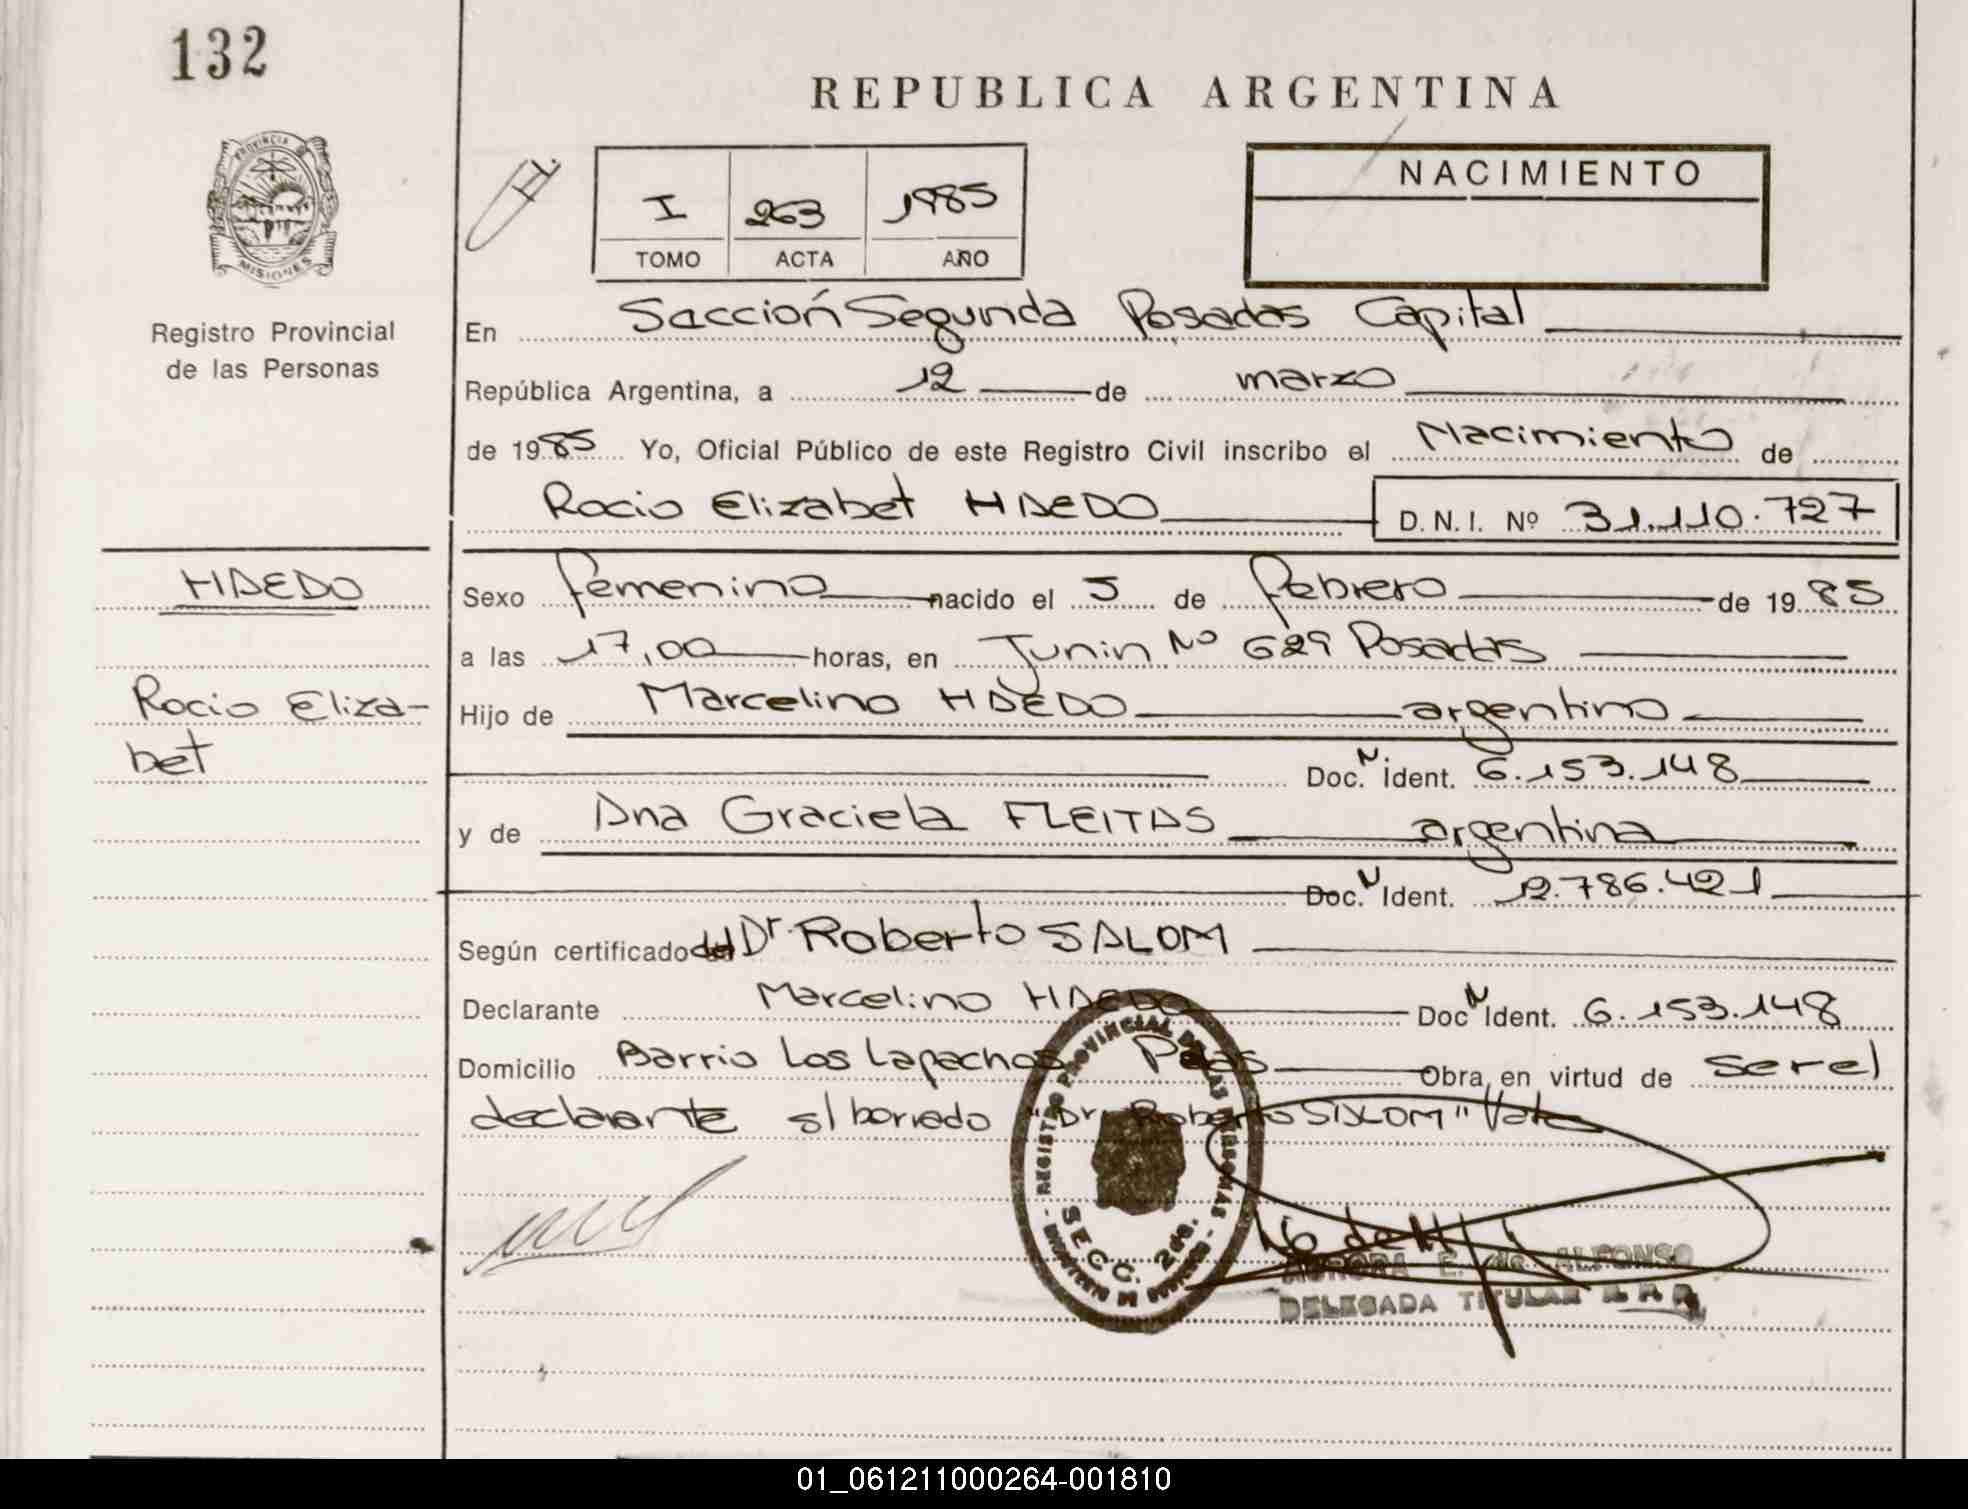 132
REPUBLICA ARGENTINA
PROVINCIA
MISIONES
Registro Provincial
de las Personas
I 263 1985
TOMO ACTA AÑO
NACIMIENTO
En Sección Segunda Posadas Capital
República Argentina, a 12 de marzo
de 1985 Yo, Oficial Público de este Registro Civil inscribo el Nacimiento de
Rocio Elizabet HAEDO D.N.I. Nº 31.110.727
HAEDO
Rocio Eliza-
bet
Sexo femenino nacido el 5 de febrero de 1985
a las 17,00 horas, en Junin Nº 629 Posadas
Hijo de Marcelino HAEDO argentino
Doc. N Ident. 6.153.148
y de Ana Graciela FLEITAS argentina
Doc. N Ident. 12.786.421
Según certificado del Dr. Roberto SALOM
Declarante Marcelino HAEDO Doc N Ident. 6.153.148
Domicilio Barrio Los Lapachos Pdas Obra en virtud de ser el
declarante s/borrado "Dr. Roberto SALOM" Vale
REGISTRO PROVINCIAL DE LAS PERSONAS
SECC. 2da.
AURORA E. de ALFONSO
DELEGADA TITULAR R. P. P.
01_061211000264-001810